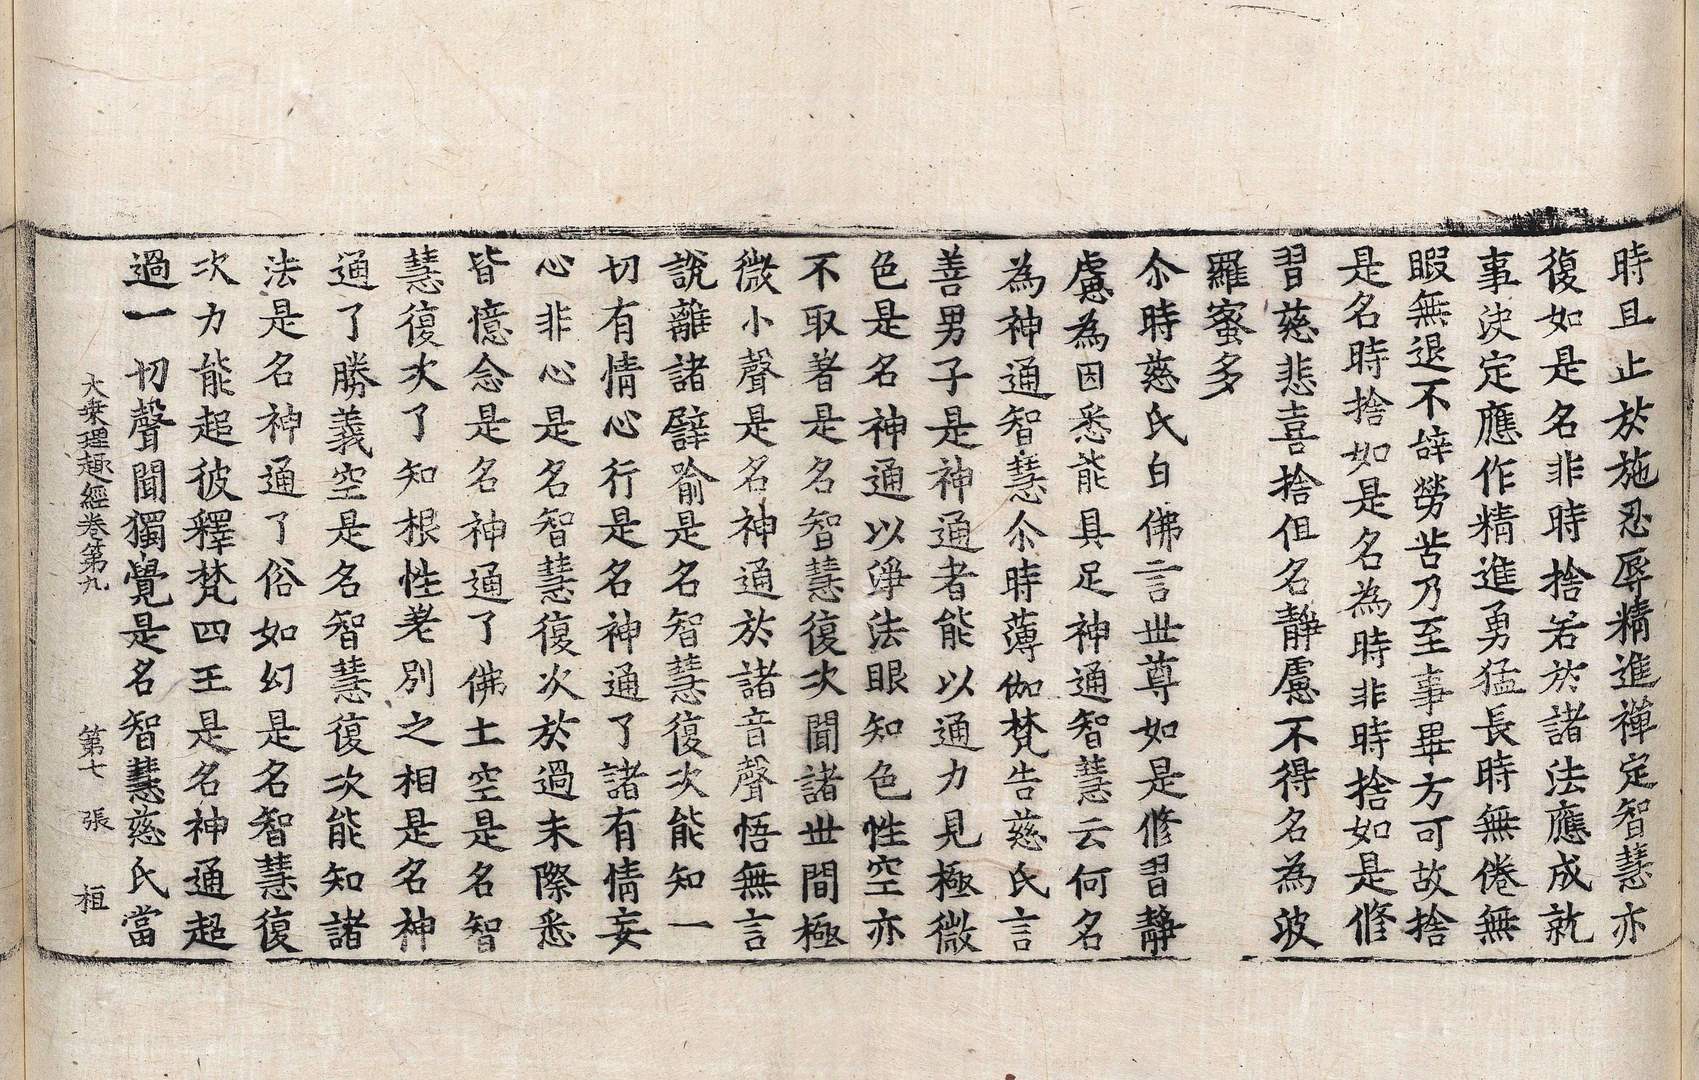 時且止於施忍辱精進禪定智慧亦
復如是名非時捨若於諸法應成就
事決定應作精進勇猛長時無倦無
暇無退不辞勞苦乃至事畢方可故捨
是名時捨如是名為時非時捨如是修
習慈悲喜捨但名靜慮不得名為波
羅蜜多
尒時慈氏白佛言世尊如是修習靜
慮為因悉能具足神通智慧云何名
為神通智慧尒時薄伽梵告慈氏言
善男子是神通者能以通力見極微
色是名神通以淨法眼知色性空亦
不取著是名智慧復次聞諸世間極
微小聲是名神通於諸音聲悟無言
說離諸譬喻是名智慧復次能知一
切有情心行是名神通了諸有情妄
心非心是名智慧復次於過未際悉
皆憶念是名神通了佛土空是名智
慧復次了知根性差別之相是名神
通了勝義空是名智慧復次能知諸
法是名神通了俗如幻是名智慧復
次力能超彼釋梵四王是名神通超
過一切聲聞獨覺是名智慧慈氏當
大乗理趣經卷第九 第七張 桓